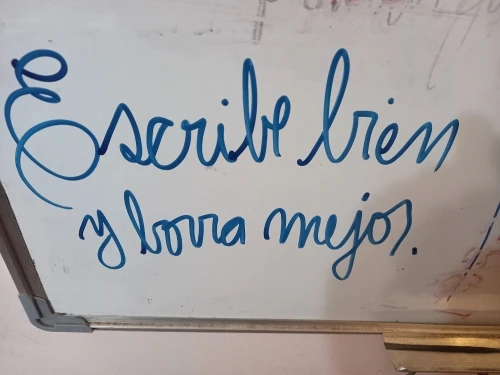 Escribe bien
y borra mejor.